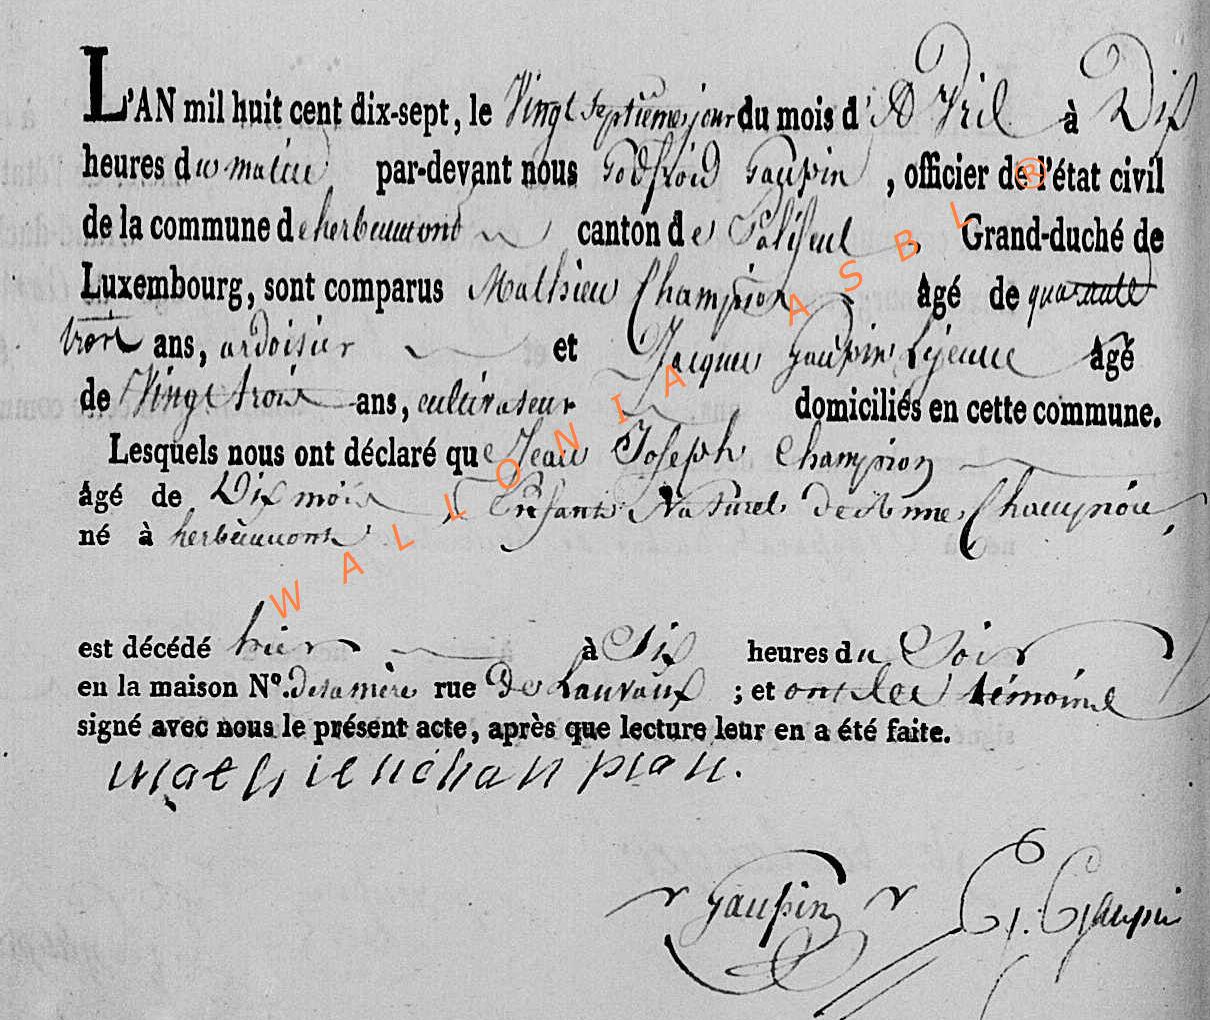 L'AN mil huit cent dix-sept, le Vingt septieme jour du mois d'Avril à Dix
heures du matin par-devant nous Godfroid Gaupin, officier de l'état civil
de la commune de herbeumont canton de Paliseul, Grand-duché de
Luxembourg, sont comparus Mathieu Champion âgé de quarante
trois ans, ardoisier et Jacques Gaupin Lejeune âgé
de Vingt trois ans, cultivateur domiciliés en cette commune.
Lesquels nous ont déclaré que Jean Joseph Champion
âgé de Dix mois, Enfant Naturel de Anne Champion,
né à herbeumont
est décédé hier à Six heures du Soir
en la maison Nº. de sa mère rue de Lauvaux ; et ont les témoins
signé avec nous le présent acte, après que lecture leur en a été faite.
mathieu chanpion.
Gaupin G. Gaupin
WALLONIA ASBL ®